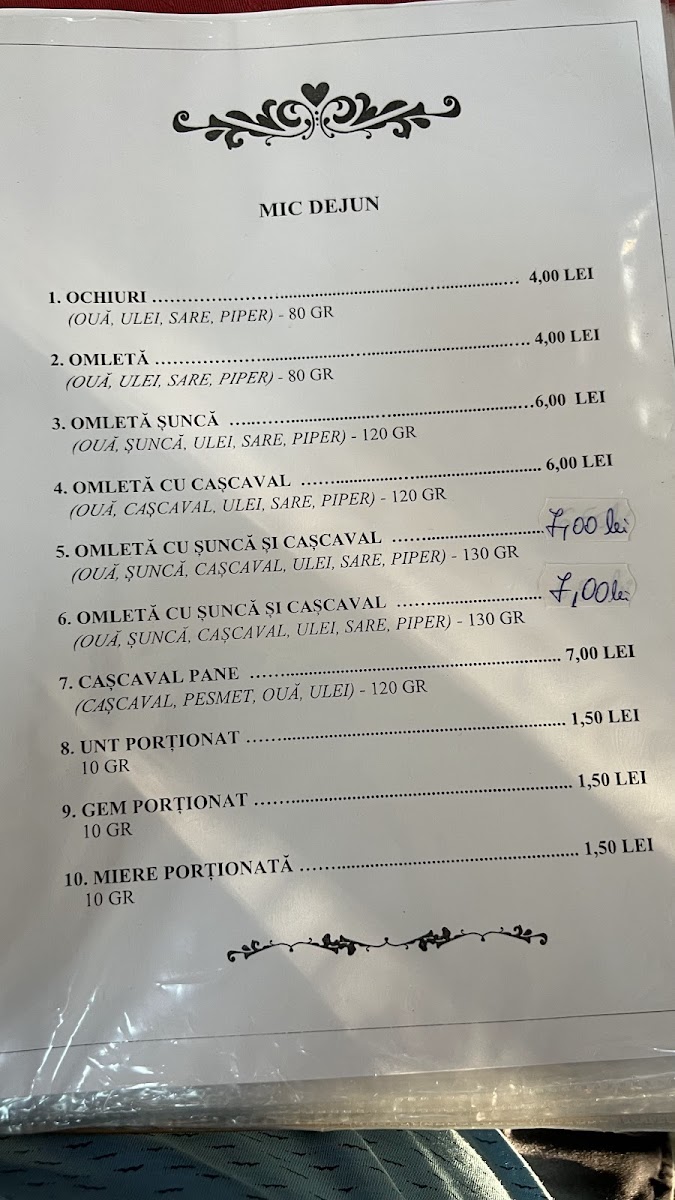 MIC DEJUN
1. OCHIURI ........................................ 4,00 LEI
(OUĂ, ULEI, SARE, PIPER) - 80 GR
2. OMLETĂ ........................................ 4,00 LEI
(OUĂ, ULEI, SARE, PIPER) - 80 GR
3. OMLETĂ ȘUNCĂ ........................................ 6,00 LEI
(OUĂ, ȘUNCĂ, ULEI, SARE, PIPER) - 120 GR
4. OMLETĂ CU CAȘCAVAL ........................................ 6,00 LEI
(OUĂ, CAȘCAVAL, ULEI, SARE, PIPER) - 120 GR
5. OMLETĂ CU ȘUNCĂ ȘI CAȘCAVAL ........................................ 7,00 lei
(OUĂ, ȘUNCĂ, CAȘCAVAL, ULEI, SARE, PIPER) - 130 GR
6. OMLETĂ CU ȘUNCĂ ȘI CAȘCAVAL ........................................ 7,00 lei
(OUĂ, ȘUNCĂ, CAȘCAVAL, ULEI, SARE, PIPER) - 130 GR
7. CAȘCAVAL PANE ........................................ 7,00 LEI
(CAȘCAVAL, PESMET, OUĂ, ULEI) - 120 GR
8. UNT PORȚIONAT ........................................ 1,50 LEI
10 GR
9. GEM PORȚIONAT ........................................ 1,50 LEI
10 GR
10. MIERE PORȚIONATĂ ........................................ 1,50 LEI
10 GR